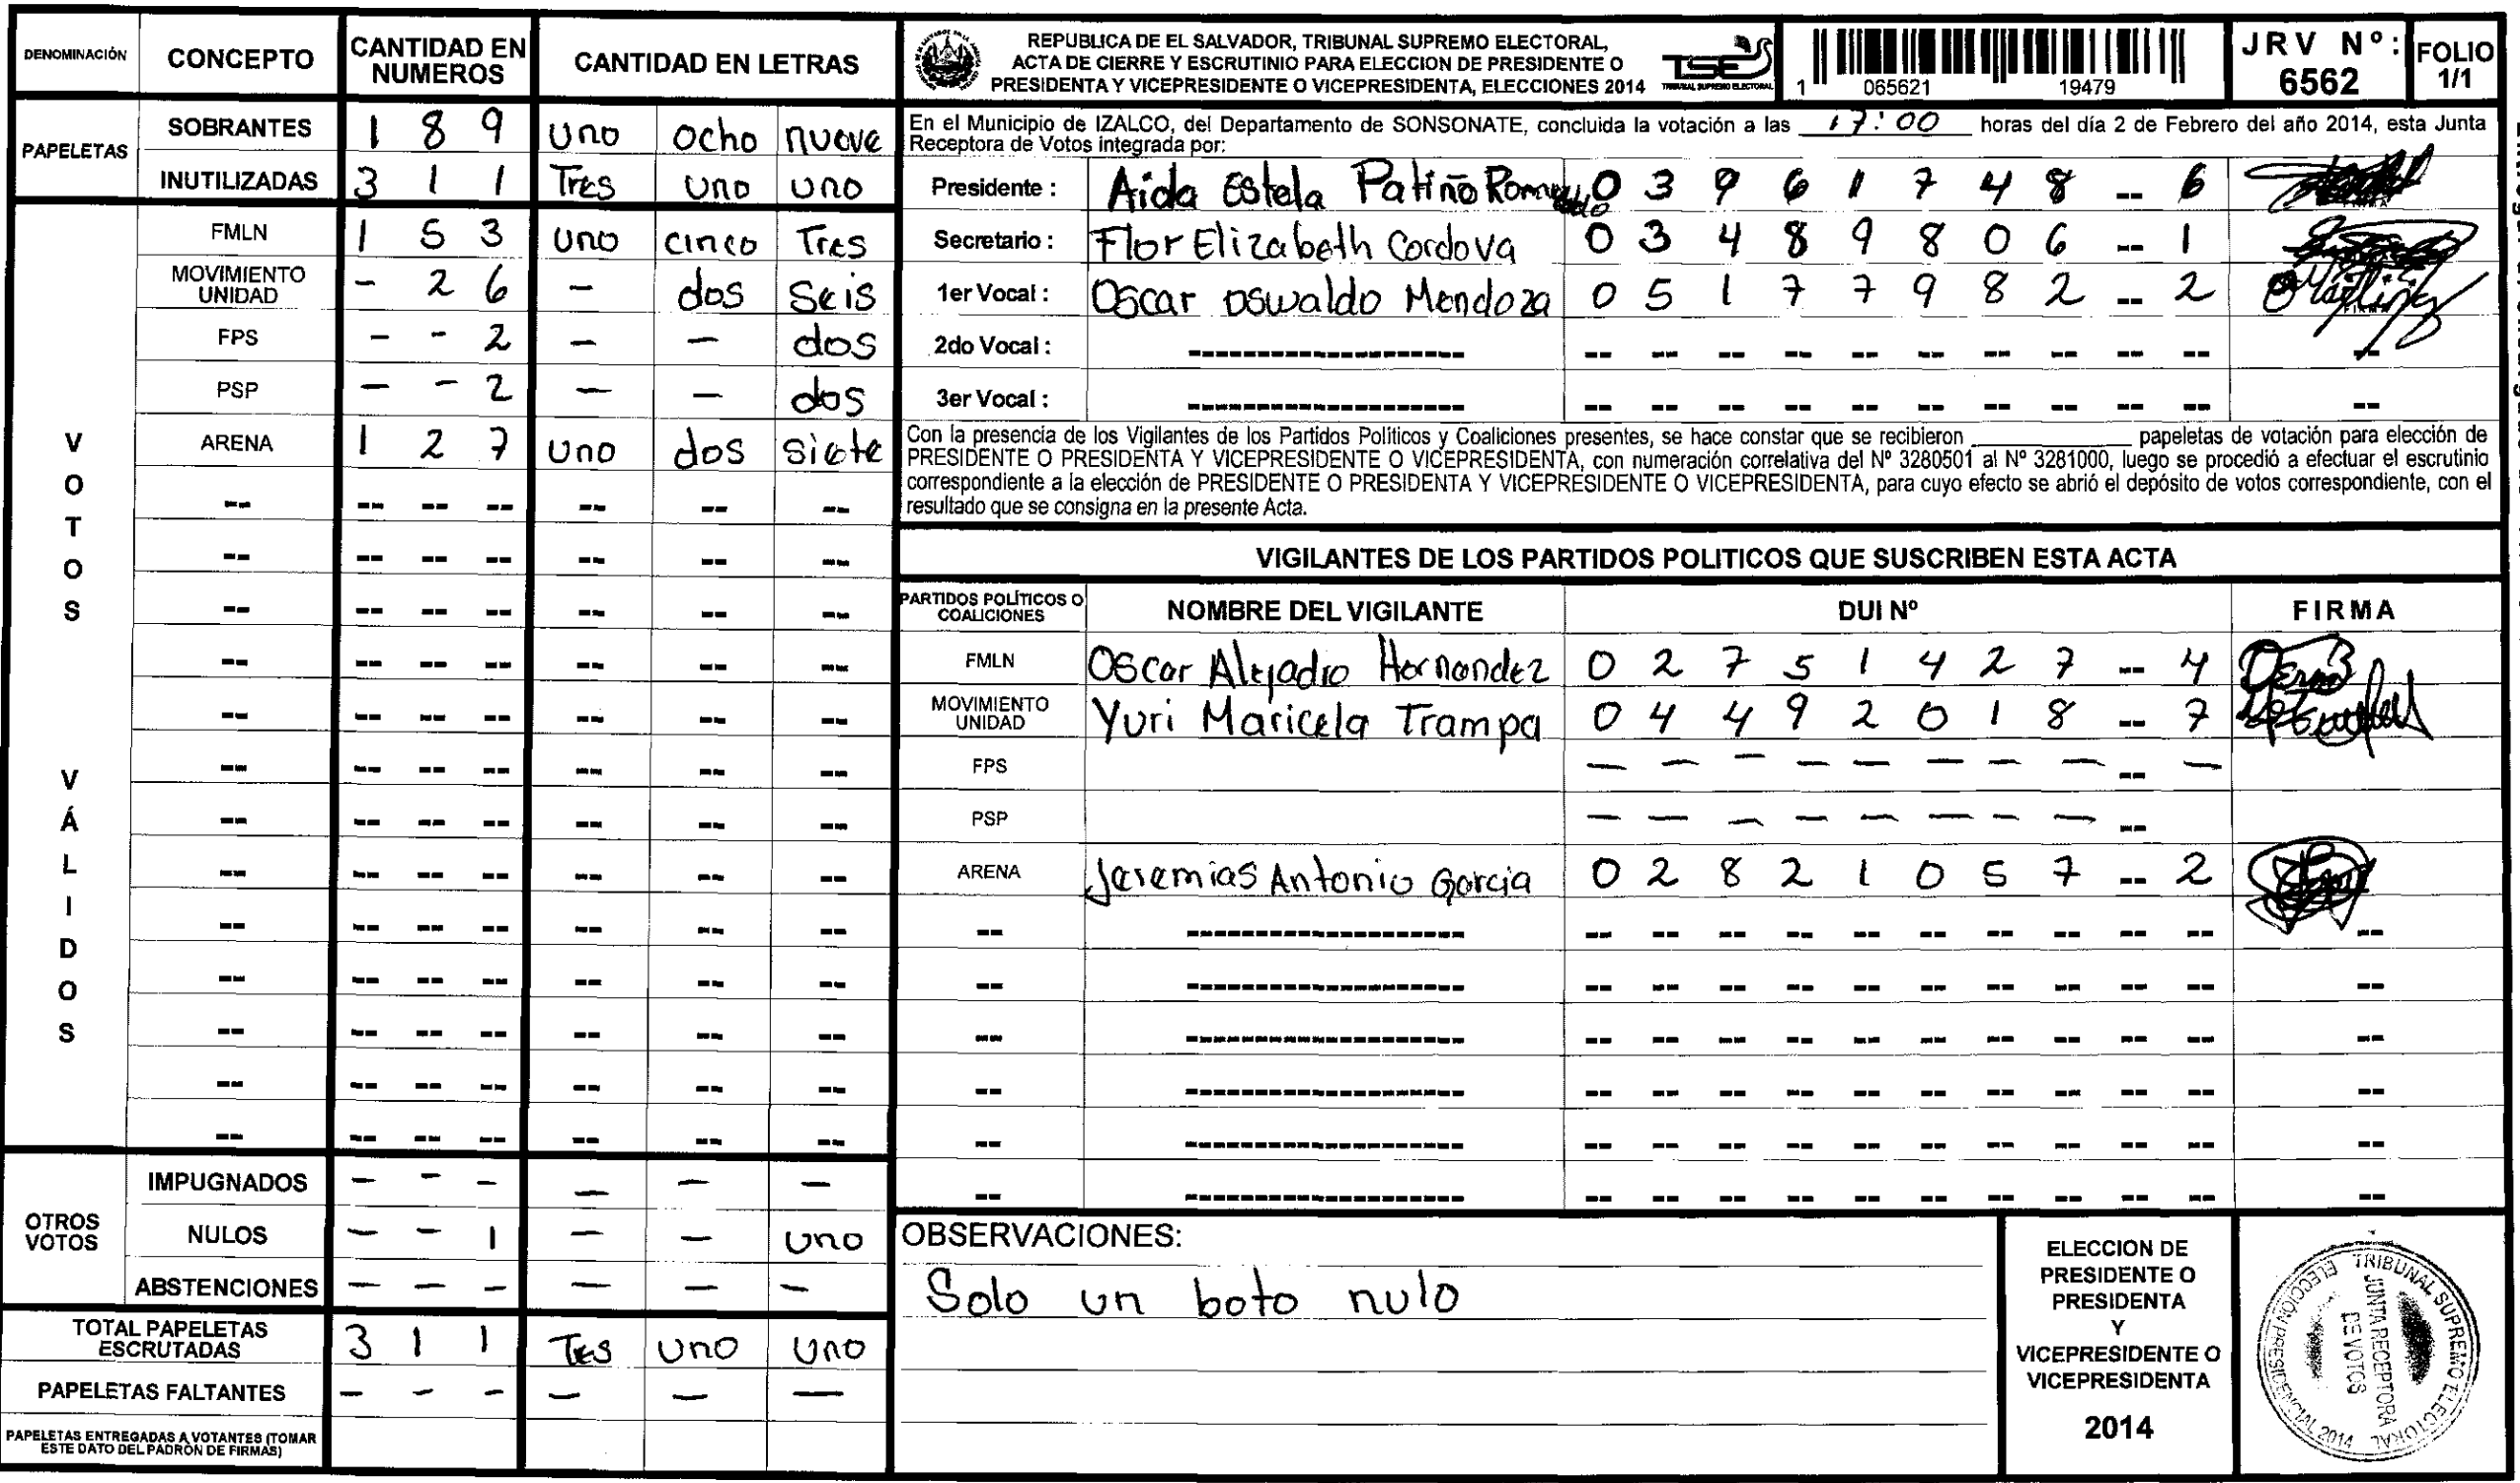 DENOMINACIÓN CONCEPTO CANTIDAD EN NUMEROS CANTIDAD EN LETRAS
PAPELETAS
SOBRANTES 1 8 9 uno ocho nueve
INUTILIZADAS 3 1 1 Tres uno uno
VOTOS VÁLIDOS
FMLN 1 5 3 uno cinco Tres
MOVIMIENTO UNIDAD - 2 6 - dos Seis
FPS - - 2 - - dos
PSP - - 2 - - dos
ARENA 1 2 7 uno dos siete
-- -- -- -- -- -- --
-- -- -- -- -- -- --
-- -- -- -- -- -- --
-- -- -- -- -- -- --
-- -- -- -- -- -- --
-- -- -- -- -- -- --
-- -- -- -- -- -- --
-- -- -- -- -- -- --
-- -- -- -- -- -- --
-- -- -- -- -- -- --
-- -- -- -- -- -- --
-- -- -- -- -- -- --
-- -- -- -- -- -- --
OTROS VOTOS
IMPUGNADOS - - - - - -
NULOS - - 1 - - uno
ABSTENCIONES - - - - - -
TOTAL PAPELETAS ESCRUTADAS 3 1 1 Tres uno uno
PAPELETAS FALTANTES - - - - - -
PAPELETAS ENTREGADAS A VOTANTES (TOMAR
ESTE DATO DEL PADRÓN DE FIRMAS)
REPUBLICA DE EL SALVADOR, TRIBUNAL SUPREMO ELECTORAL,
ACTA DE CIERRE Y ESCRUTINIO PARA ELECCION DE PRESIDENTE O
PRESIDENTA Y VICEPRESIDENTE O VICEPRESIDENTA, ELECCIONES 2014
TSE
TRIBUNAL SUPREMO ELECTORAL
1 065621 19479
JRV Nº: 6562
FOLIO 1/1
En el Municipio de IZALCO, del Departamento de SONSONATE, concluida la votación a las 17:00 horas del día 2 de Febrero del año 2014, esta Junta
Receptora de Votos integrada por:
Presidente : Aida Estela Patiño 0 3 9 6 1 7 4 8 -- 6
Secretario : Flor Elizabeth Cordova 0 3 4 8 9 8 0 6 -- 1
1er Vocal : Oscar oswaldo Mendoza 0 5 1 7 7 9 8 2 -- 2
2do Vocal : -------------------- -- -- -- -- -- -- -- -- -- -- --
3er Vocal : -------------------- -- -- -- -- -- -- -- -- -- -- --
Con la presencia de los Vigilantes de los Partidos Politicos y Coaliciones presentes, se hace constar que se recibieron ____________ papeletas de votación para elección de
PRESIDENTE O PRESIDENTA Y VICEPRESIDENTE O VICEPRESIDENTA, con numeración correlativa del Nº 3280501 al Nº 3281000, luego se procedió a efectuar el escrutinio
correspondiente a la elección de PRESIDENTE O PRESIDENTA Y VICEPRESIDENTE O VICEPRESIDENTA, para cuyo efecto se abrió el depósito de votos correspondiente, con el
resultado que se consigna en la presente Acta.
VIGILANTES DE LOS PARTIDOS POLITICOS QUE SUSCRIBEN ESTA ACTA
PARTIDOS POLÍTICOS O COALICIONES NOMBRE DEL VIGILANTE DUI Nº FIRMA
FMLN Oscar Alejadro Hernandez 0 2 7 5 1 4 2 7 -- 4
MOVIMIENTO UNIDAD Yuri Maricela Trampa 0 4 4 9 2 0 1 8 -- 7
FPS - - - - - - - - -- -
PSP - - - - - - - - --
ARENA Jeremias Antonio Garcia 0 2 8 2 1 0 5 7 -- 2
-- -------------------- -- -- -- -- -- -- -- -- -- -- --
-- -------------------- -- -- -- -- -- -- -- -- -- -- --
-- -------------------- -- -- -- -- -- -- -- -- -- -- --
-- -------------------- -- -- -- -- -- -- -- -- -- -- --
-- -------------------- -- -- -- -- -- -- -- -- -- -- --
-- -------------------- -- -- -- -- -- -- -- -- -- -- --
OBSERVACIONES:
Solo un boto nulo
ELECCION DE
PRESIDENTE O
PRESIDENTA
Y
VICEPRESIDENTE O
VICEPRESIDENTA
2014
TRIBUNAL SUPREMO ELECTORAL
JUNTA RECEPTORA
DE VOTOS
ELECCION PRESIDENCIAL 2014